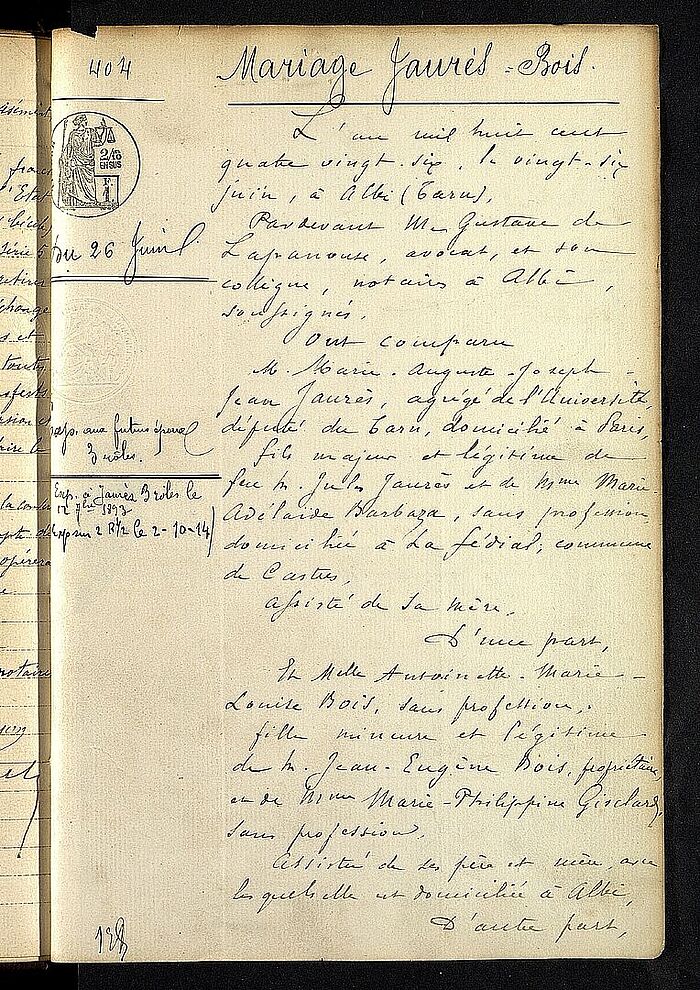 404
Mariage Jaurès = Bois.
2/10
EN SUS
F.
1
Du 26 Juin
L'an mil huit cent
quatre vingt-six, le vingt-six
juin, à Albi (Tarn),
Pardevant Me Gustave de
Lapanouse, avocat, et son
collègue, notaires à Albi,
soussignés,
Ont comparu
M. Marie-Auguste-Joseph-
Jean Jaurès, agrégé de l'Université,
député du Tarn, domicilié à Paris,
fils majeur et légitime de
feu M. Jules Jaurès et de Mme Marie-
Adélaïde Barbaza, sans profession,
domiciliée à La fédial, commune
de Castres,
assisté de sa mère,
D'une part,
Et Melle Antoinette-Marie-
Louise Bois, sans profession,
fille mineure et légitime
de M. Jean-Eugène Bois, propriétaire,
et de Mme Marie-Philippine Gisclard,
sans profession,
Assistée de ses père et mère, avec
lesquels elle est domiciliée à Albi,
D'autre part,
exp. aux futurs époux
3 rôles.
Exp. à Jaurès 3 rôles le
12 7bre 1893
Exp sur 2 R 1/2 le 2-10-14